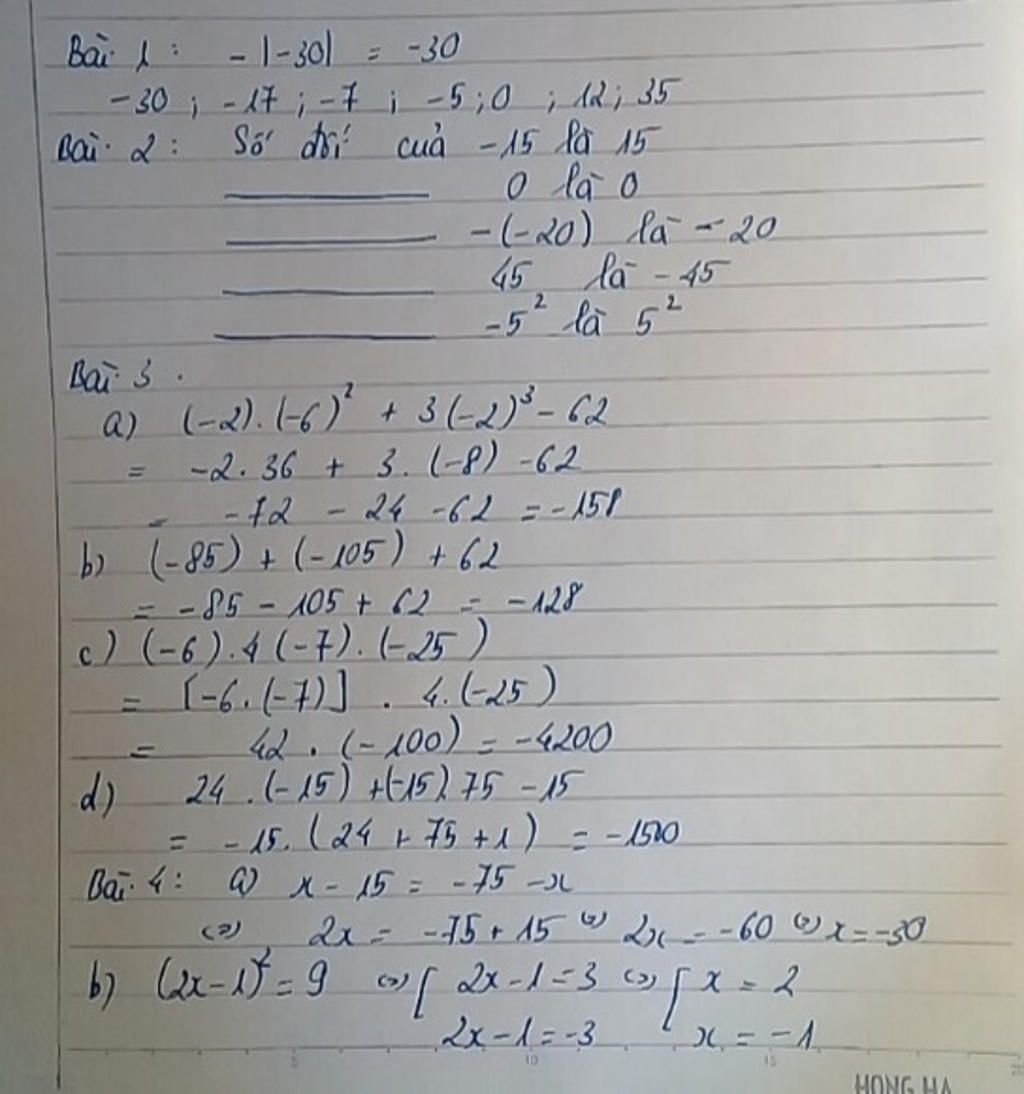 Bài 1 : - |-30| = -30
-30 ; -17 ; -7 ; -5 ; 0 ; 12 ; 35
Bài 2 : Số đối của -15 là 15
0 là 0
-(-20) là -20
45 là -45
-5² là 5²
Bài 3 .
a) (-2).(-6)² + 3(-2)³ - 62
= -2.36 + 3.(-8) -62
= -72 - 24 -62 = -158
b) (-85) + (-105) + 62
= -85 - 105 + 62 = -128
c) (-6).4(-7).(-25)
= [-6.(-7)] . 4.(-25)
= 42 . (-100) = -4200
d) 24 .(-15) +(-15).75 -15
= -15.(24 + 75 +1) = -1500
Bài 4 : a) x - 15 = -75 -x
<=> 2x = -75 + 15 <=> 2x = -60 <=> x = -30
b) (2x-1)² = 9 <=> [ 2x - 1 = 3 <=> [ x = 2
2x - 1 = -3 x = -1
5 10 15 20
HONG HA